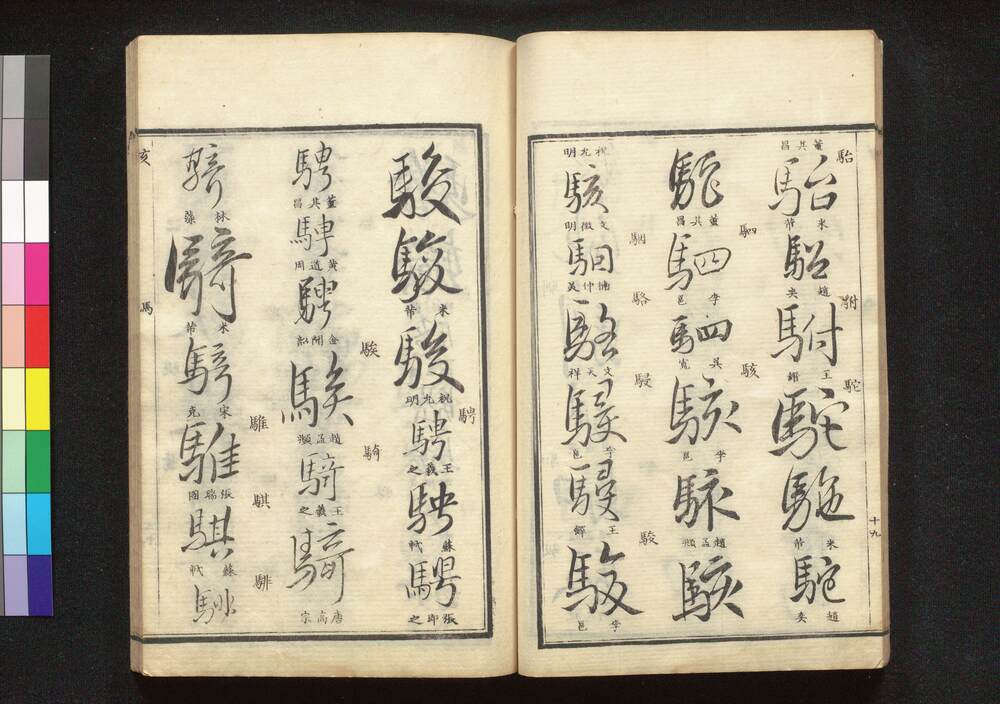 駘
駘 董其昌
駘 米芾
駙
駙 趙奕
駝
駝 王鐸
駝 米芾
駝 趙奕
十九
駝 董其昌
駟
駟 李邕
駟 吳寬
駭
駭 李邕
駭 趙孟頫
駭
駭 祝允明
駰
駰 文徵明
駱
駱
駸
駸 文天祥
駸 李邕
駿
駿 王鐸
李邕
駿
駿 米芾
駿 祝允明
騁
騁 王羲之
騁 蘇軾
騁 張即之
騁 董其昌
騁 黃道周
騁
騃
騃
騎
騎 趙孟頫
騎 王羲之
騎 唐高宗
亥
馬
騎
騎 林藻
騎 米芾
騅
騅 宋克
騏
騏 張瑞圖
騑
騑 蘇軾